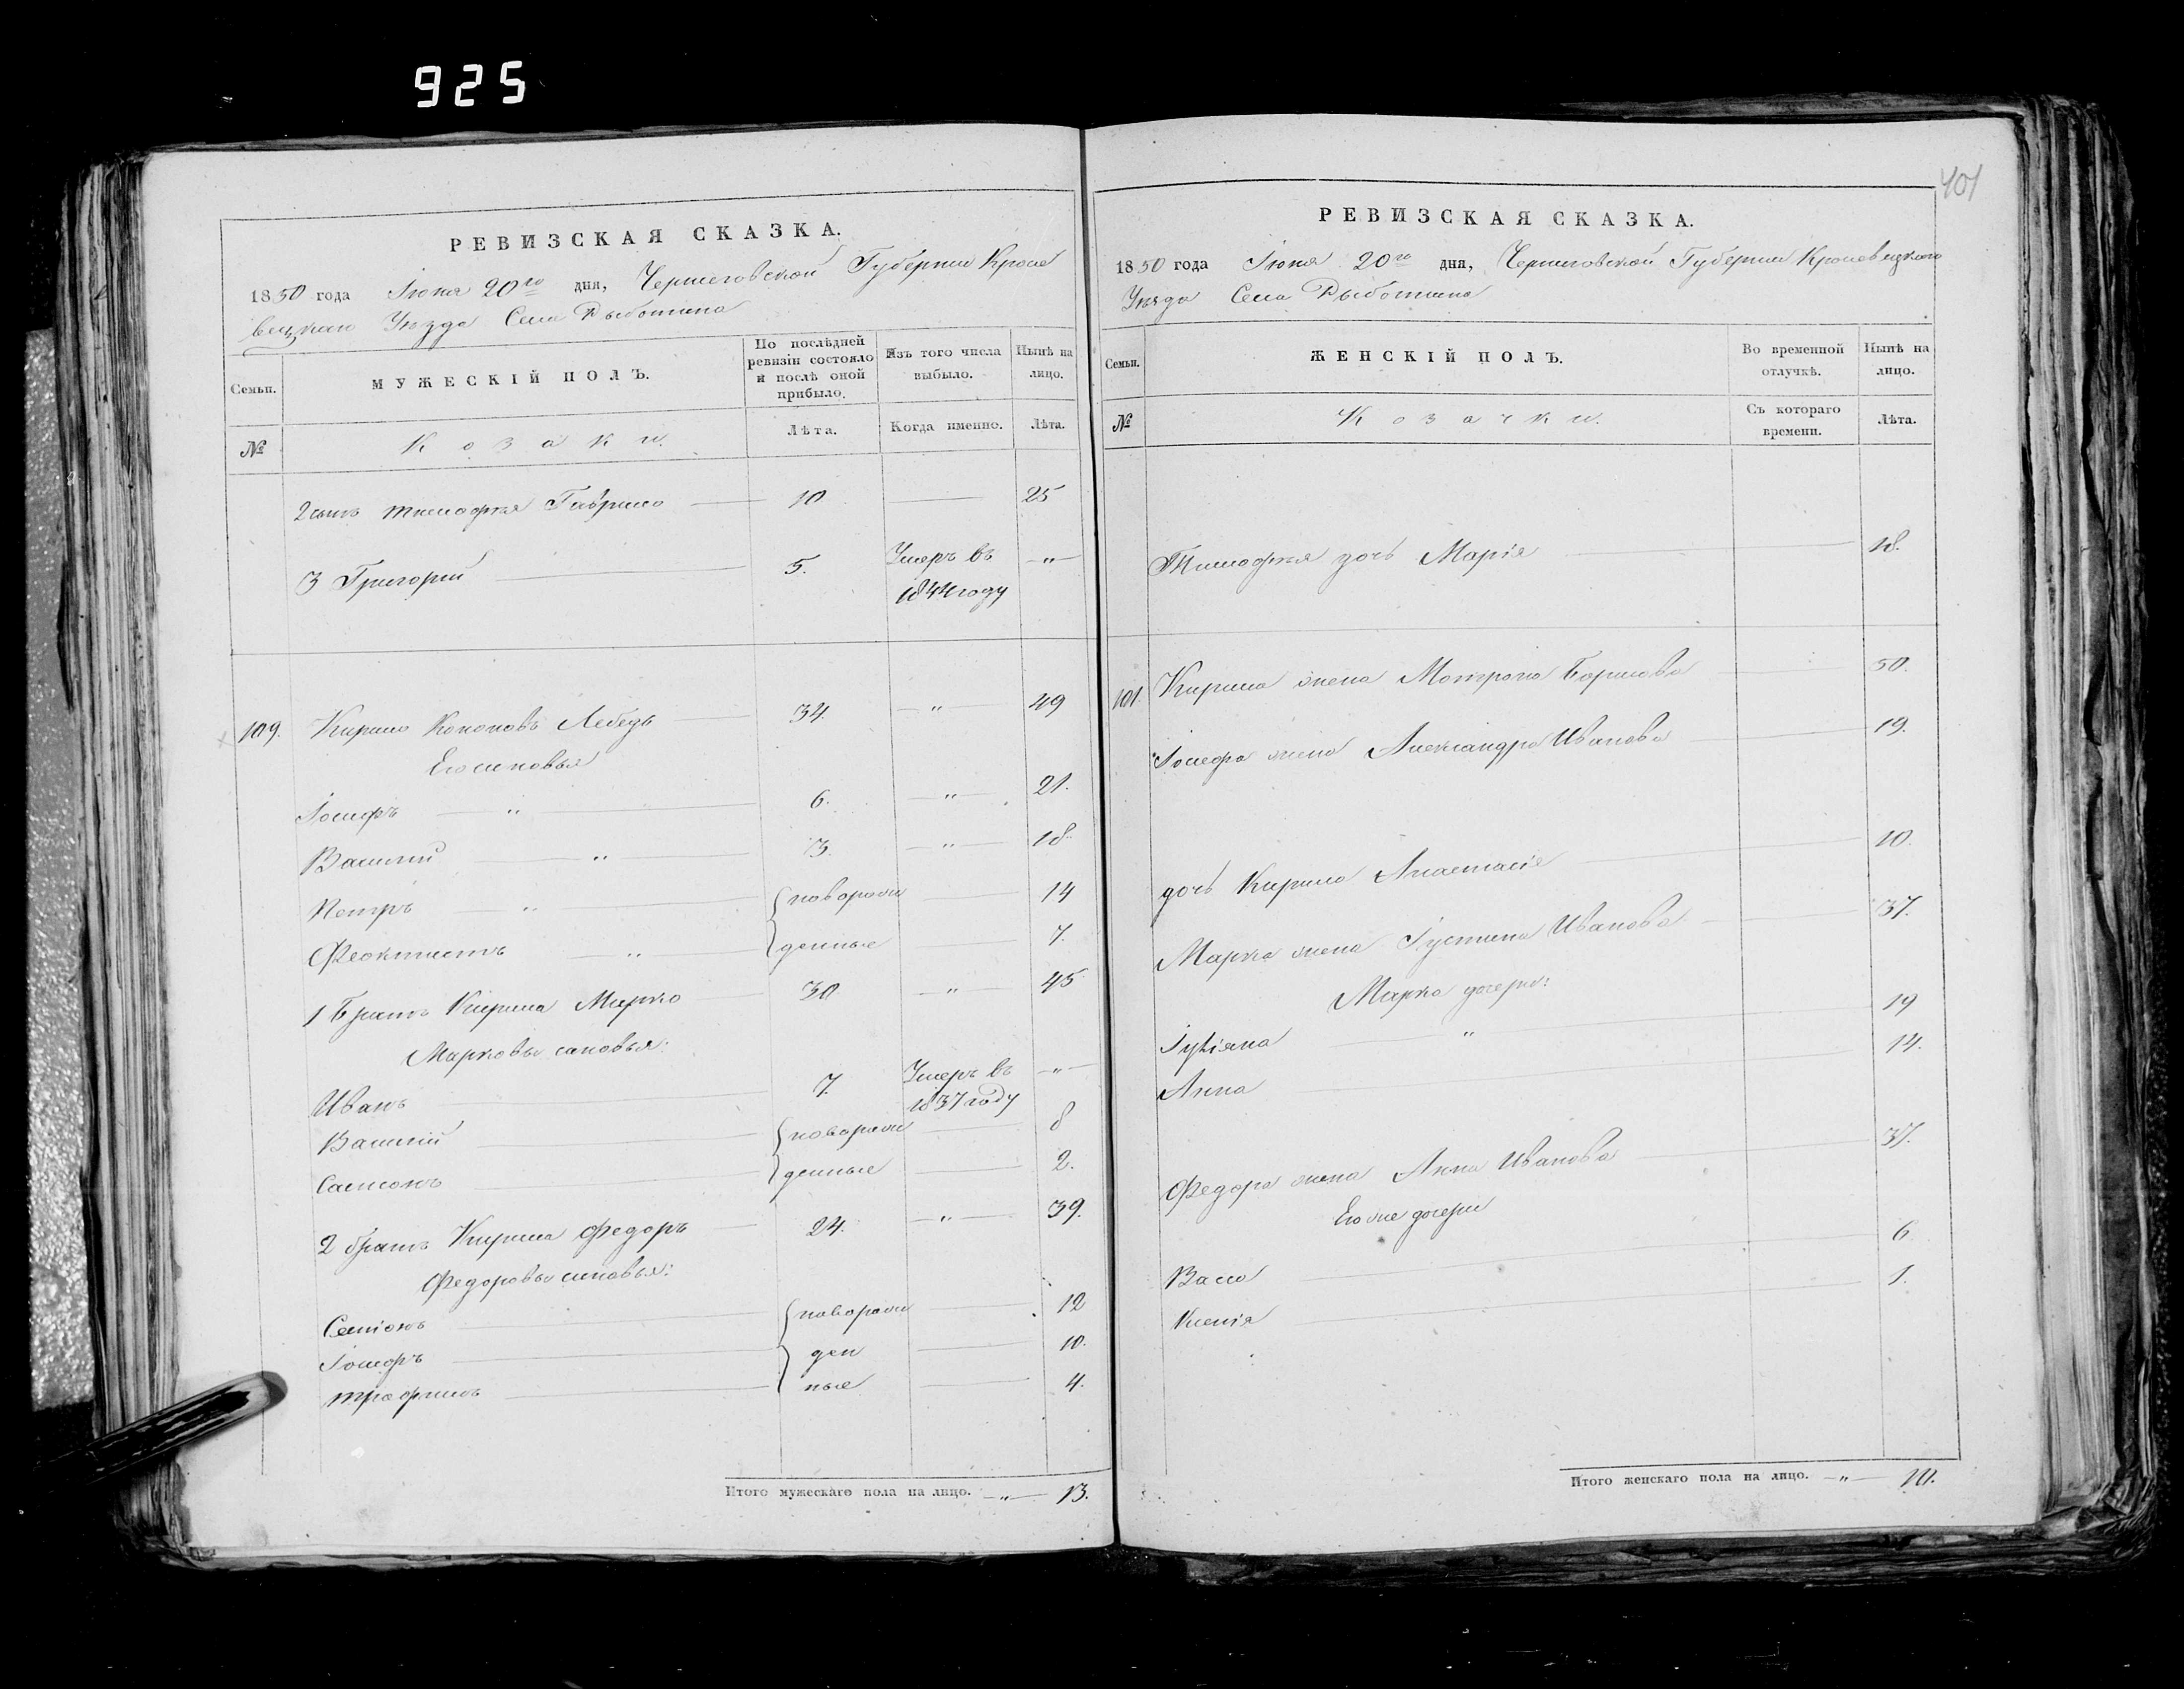 925
401
РЕВИЗСКАЯ СКАЗКА.
1850 года Іюня 20го дня, Черниговской Губерніи Кроле
вецкаго Уезда Села Рыботина
Семьи.
МУЖЕСКІЙ ПОЛЪ.
По послѣдней ревизіи состояло и послѣ оной прибыло.
Изъ того числа выбыло.
Нынѣ на лицо.
№
Козаки.
Лѣта.
Когда именно.
Лѣта.
2 сынъ Тимофея Гаврило 10 25
3 Григорій 5. Умеръ въ 1844 году „
109. Кирило Кононовъ Лебедь 34. „ 49
Его синовья
Іосифъ „ 6. „ 21.
Василій „ 3. „ 18.
Петръ „ новорож 14
Феоктистъ „ денные 7.
1 Братъ Кирила Марко 30 „ 45
Марковы сановья:
Иванъ 7. Умеръ въ 1837 году „
Василій новорож 8
Самсонъ денные 2.
2 братъ Кирила Федоръ 24. „ 39.
Федоровы синовья:
Семіонъ новорож 12
Іосифъ ден 10.
Трофимъ ные 4.
Итого мужескаго пола на лицо. „ 13.
РЕВИЗСКАЯ СКАЗКА.
1850 года Іюня 20го дня, Черниговской Губерніи Кролевецкого
Уезда Села Рыботина
Семьи.
ЖЕНСКІЙ ПОЛЪ.
Во временной отлучкѣ.
Нынѣ на лицо.
№
Козачки.
Съ котораго времени.
Лѣта.
Тимофея дочь Марія 18.
Кирила жена Мотрона Борисова 50.
Іосифа жена Александра Иванова 19.
дочь Кирила Анастасія 10.
Марка жена Іустина Иванова 37.
Марка дочери:
„ 19
Анна 14.
Федора жена Анна Иванова 37.
Его же дочери
Васса 6
Ксенія 1.
Итого женскаго пола на лицо. „ 10.